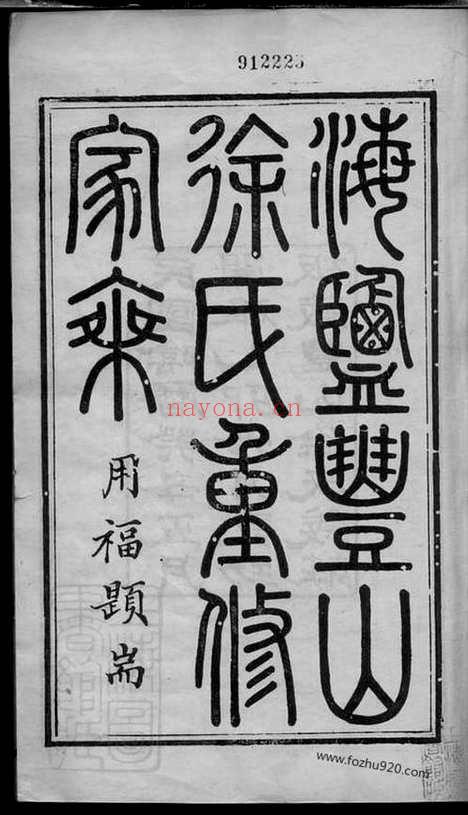 912225
海鹽豐山
徐氏重修
家乘
用福題耑
nayona.cn
www.fozhu920.com